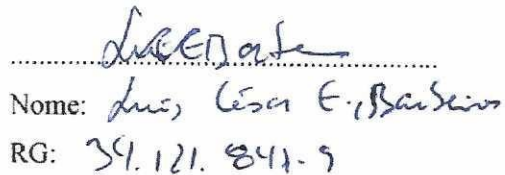 Nome: Luis César E. Barbeiros
RG: 34.121.841-9